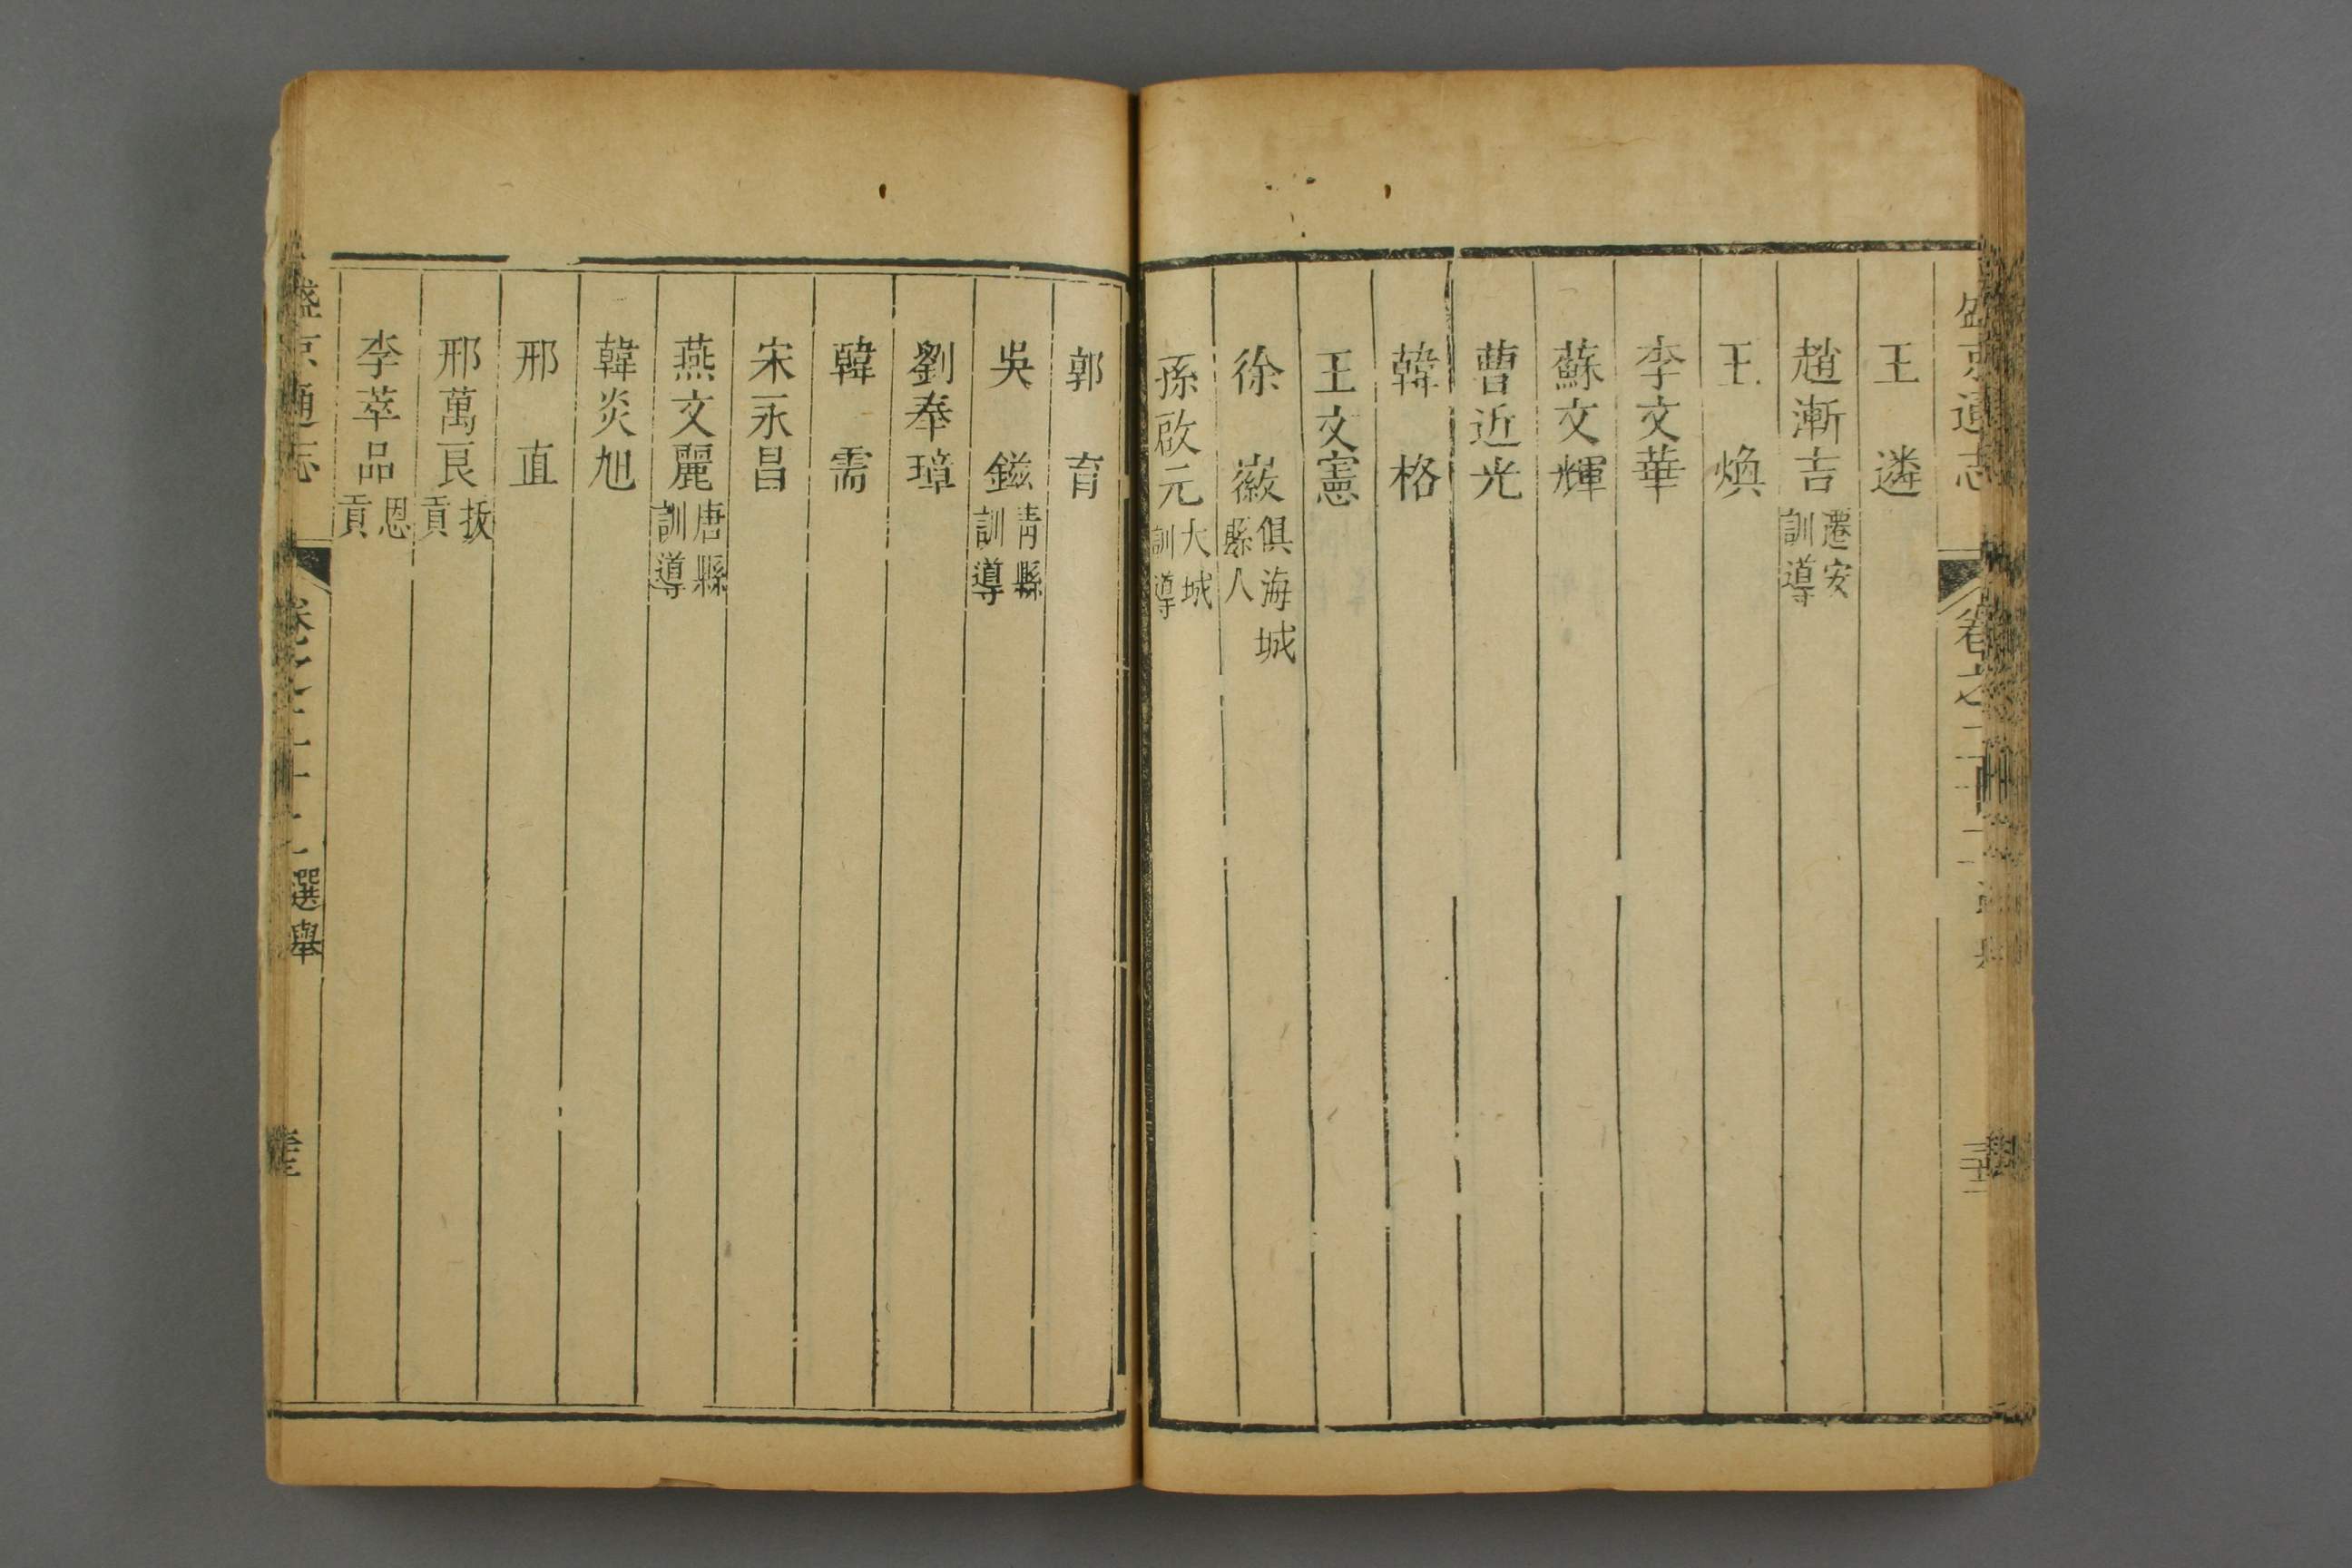 盛京通志
王 遴
趙漸吉 遷安訓導
王 煥
李文華
蘇文輝
曹近光
韓 格
王文憲
徐 嶶 俱海城縣人
孫啟元 大城訓導
郭 育
吳 鎡 青縣訓導
劉奉璋
韓 需
宋永昌
燕文麗 唐縣訓導
韓炎旭
邢 直
邢萬良 拔貢
李萃品 恩貢
盛京通志
選舉